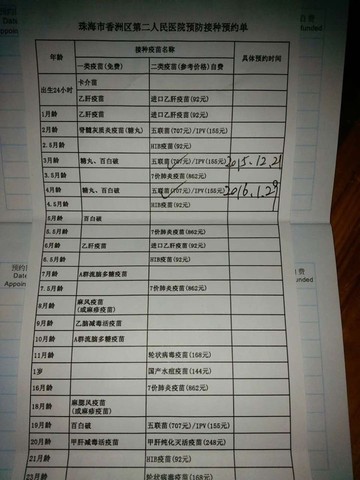 珠海市香洲区第二人民医院预防接种预约单
年龄 接种疫苗名称 具体预约时间
一类疫苗(免费) 二类疫苗(参考价格)自费
出生24小时 卡介苗
乙肝疫苗 进口乙肝疫苗(92元)
1月龄 乙肝疫苗 进口乙肝疫苗(92元)
2月龄 脊髓灰质炎疫苗(糖丸) 五联苗(707元)/IPV(155元)
2.5月龄 HIB疫苗(92元)
3月龄 糖丸、百白破 五联苗(707元)/IPV(155元) 2015.12.21
3.5月龄 7价肺炎疫苗(862元)
4月龄 糖丸、百白破 五联苗(707元)/IPV(155元) 2016.1.29
4.5月龄 HIB疫苗(92元)
5月龄 百白破
5.5月龄 7价肺炎疫苗(862元)
6月龄 乙肝疫苗 进口乙肝疫苗(92元)
6.5月龄 HIB疫苗(92元)
7月龄 A群流脑多糖疫苗
7.5月龄 7价肺炎疫苗(862元)
8月龄 麻风疫苗
(或麻疹疫苗)
9月龄 乙脑减毒活疫苗
10月龄 A群流脑多糖疫苗
11月龄 轮状病毒疫苗(168元)
1岁 国产水痘疫苗(144元)
16月龄 7价肺炎疫苗(862元)
18月龄 麻腮风疫苗
(或麻疹疫苗)
19月龄 百白破 五联苗(707元)/IPV(155元)
20月龄 甲肝减毒活疫苗 甲肝纯化灭活疫苗(248元)
21月龄 HIB疫苗(92元)
23月龄 轮状病毒疫苗(168元)
自费
预约
Date
Appoin
自费
unded